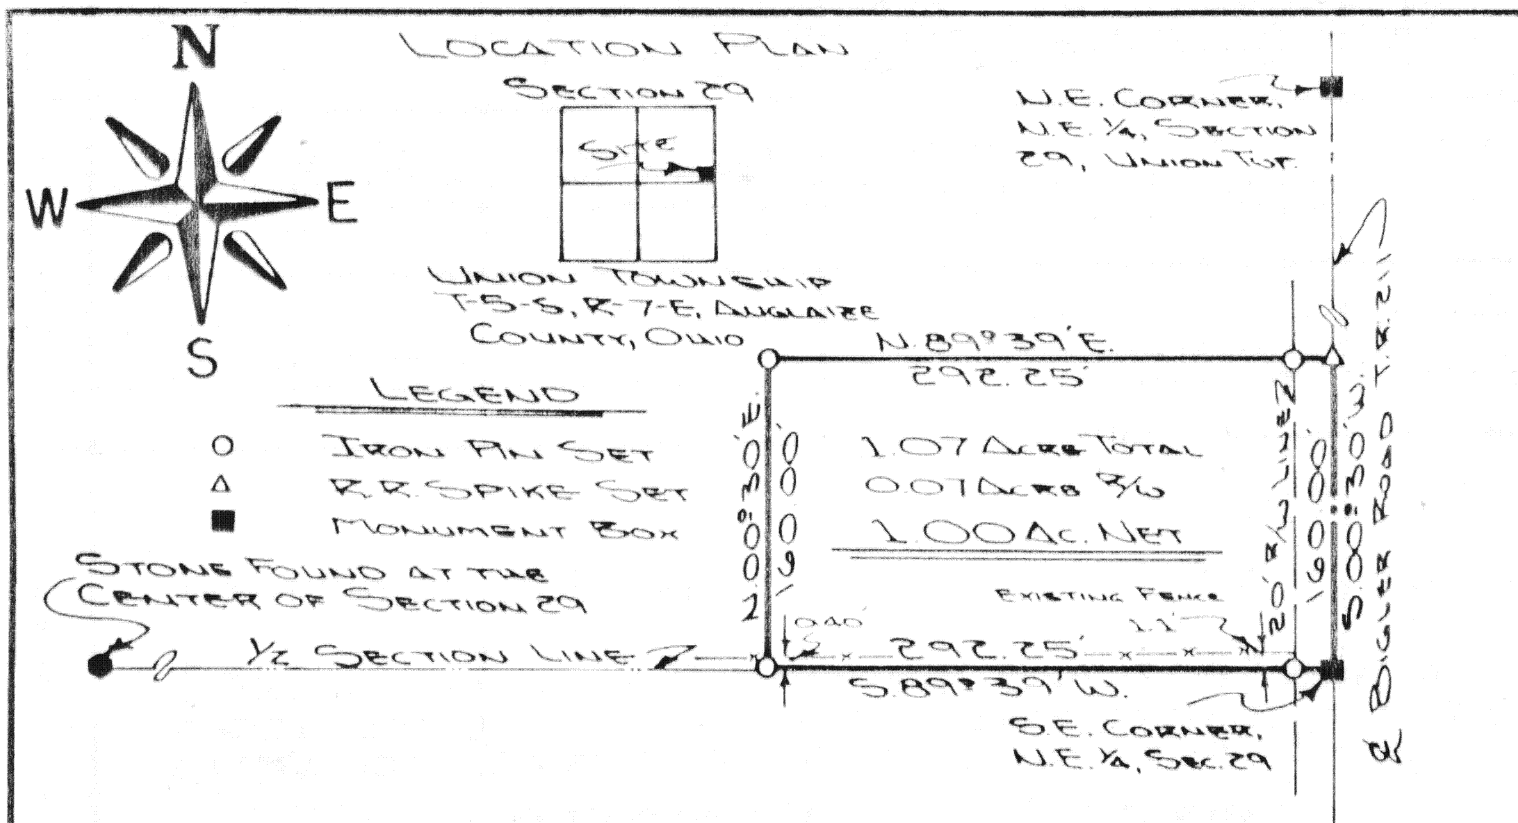 N
W E
S
LOCATION PLAN
SECTION 29
SITE
UNION TOWNSHIP
T-5-S, R-7-E, AUGLAIZE
COUNTY, OHIO
N.E. CORNER,
N.E. 1/4, SECTION
29, UNION TWP.
LEGEND
IRON PIN SET
R.R. SPIKE SET
MONUMENT BOX
STONE FOUND AT THE
CENTER OF SECTION 29
1/2 SECTION LINE
N.89°39'E.
292.25'
N.00°30'E.
160.00'
1.07 ACRE TOTAL
0.07 ACRE R/W
1.00 AC. NET
EXISTING FENCE
0.40'
1.1'
292.25'
S.89°39'W.
20' R/W LINE
160.00'
S.00°30'W.
℄ BIGLER ROAD T.R. 211
S.E. CORNER,
N.E. 1/4, SEC. 29